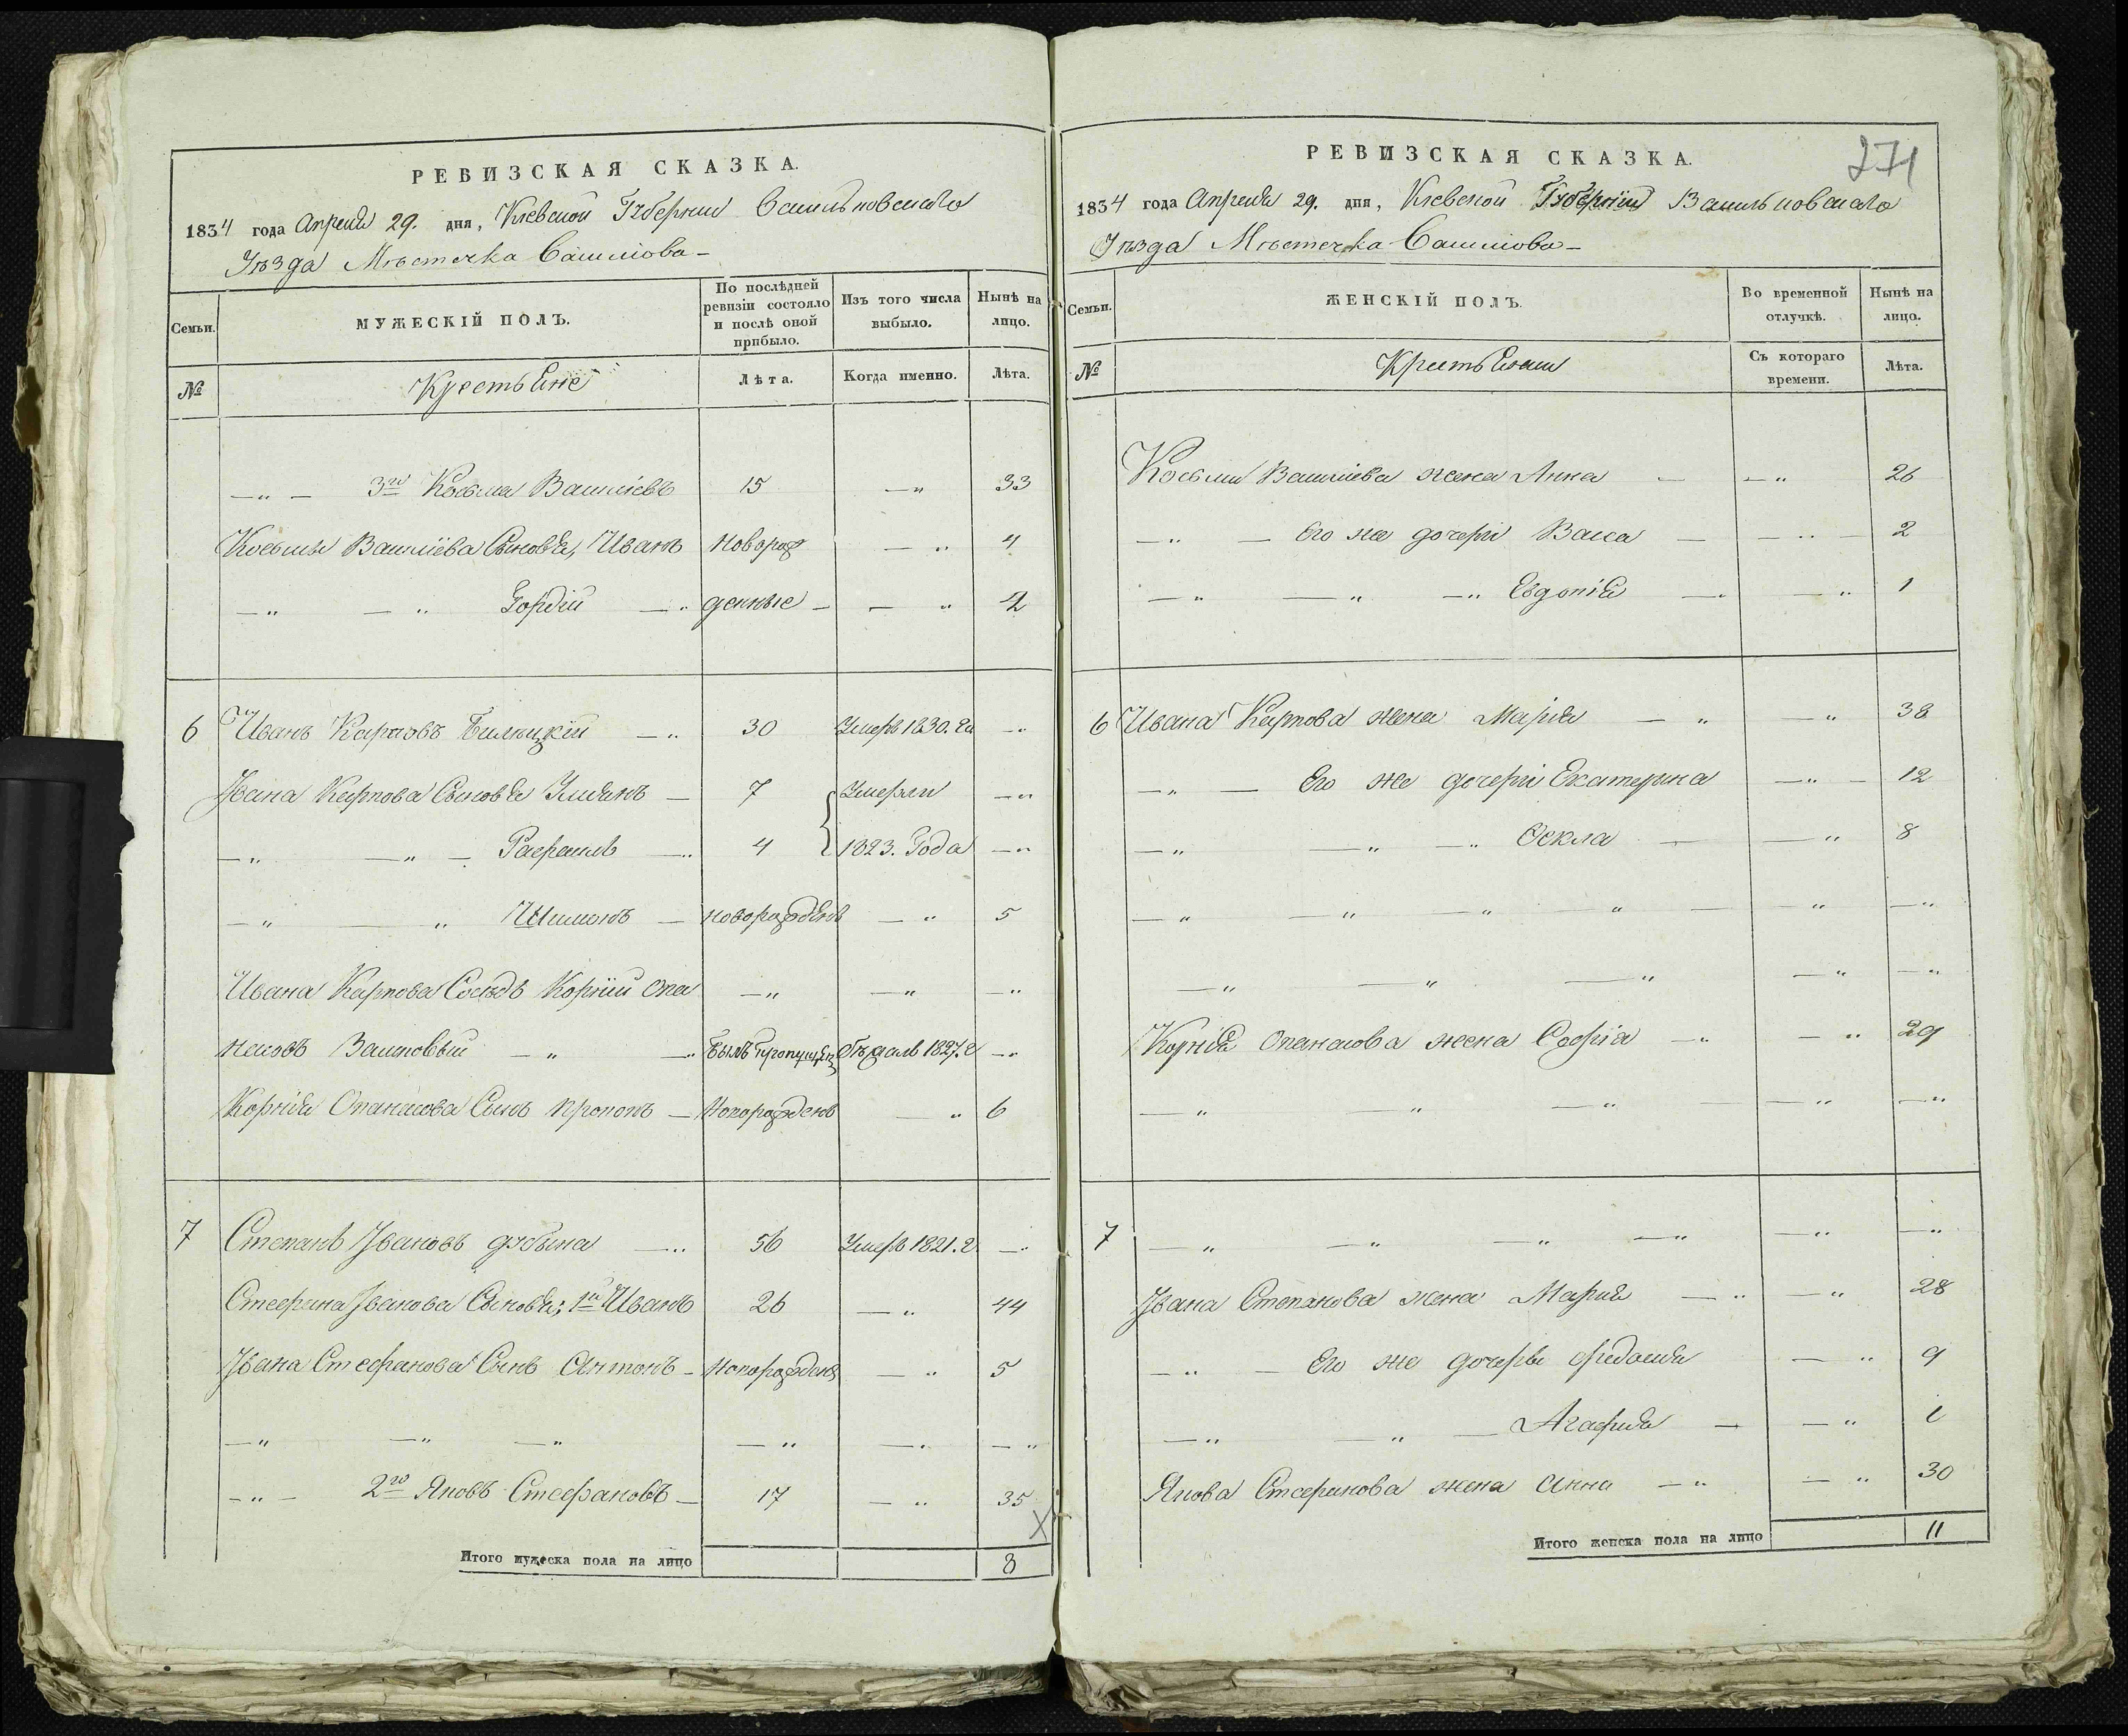 РЕВИЗСКАЯ СКАЗКА.
1834 года Апреля 29. дня, Киевской Губернии Васильковского
Уѣзда Мѣстечка
Семьи.
МУЖЕСКІЙ ПОЛЪ.
По послѣдней ревизіи состояло и послѣ оной прибыло.
Изъ того числа выбыло.
Нынѣ на лицо.
№
Крестьяне
Лѣта.
Когда именно.
Лѣта.
—„— 3й Косьма Василіевъ 15 —„ 33
Косьмы Василіева Сыновья, Иванъ новорож —„ 4
—„ —„ Гордій —„ денные — —„ 2
6 Иванъ Карповъ Билецкій —„ 30 Умеръ 1830. го —„
Івана Карпова Сыновья — 7 Умерли —„
—„ —„ — —„ 4 1823. Года —„
—„ —„ Шимонъ — новорожденъ —„ 5
Ивана Карпова Сосѣдъ Корній Опа —„ —„ —„
насовъ —„ —„ Былъ пропущен Бѣжалъ 1827. г —„
Корнія Опанасова Сынъ Прокопъ — Новорожденъ —„ 6
7 Степанъ Івановъ дубына —„ 56 Умеръ 1821. г —„
Стефана Іванова Сыновья; 1й Иванъ 26 —„ 44
Івана Стефанова Сынъ Антонъ — Новорожденъ —„ 5
—„ —„ —„ —„ —„ —„
—„— 2й Яковъ Стефановъ — 17 —„ 35
Х
Итого мужеска пола на лицо 8
РЕВИЗСКАЯ СКАЗКА.
271
1834 года Апреля 29. дня, Киевской Губерніи Васильковского
Уѣзда Мѣстечка
Семьи.
ЖЕНСКІЙ ПОЛЪ.
Во временной отлучкѣ.
Нынѣ на лицо.
№
Крестьянки
Съ котораго времени.
Лѣта.
Косьмы Василіева жена Анна — —„ 26
—„ — Его же дочери Васса — —„— 2
—„ —„ —„ Евдокія —„ —„ 1
6 Ивана Карпова жена Марія —„ —„ 38
—„ — Его же дочери Екатерина —„— 12
—„ —„ —„ Ѳекла — —„ 8
—„ —„ —„ —„ — —„ —„
—„ —„ —„ —„ —„
Корнія Опанасова жена Софія —„ —„ 29
—„ —„ —„ — —„ —„
7 —„ —„ —„ —„ —„ —„
Івана Степанова жена Мария —„ —„ 28
—„ — Его же дочеры Федосия —„ 9
—„ —„ — Агафия — —„ 1
Якова Стефанова жена Анна —„ —„ 30
Итого женска пола на лицо 11